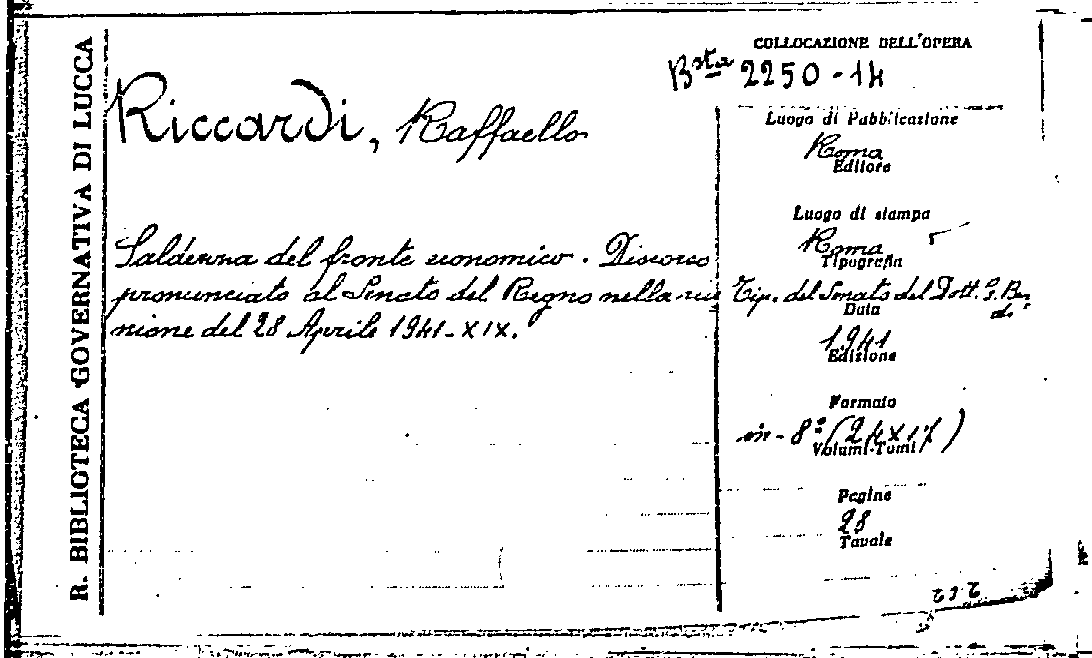 R. BIBLIOTECA GOVERNATIVA DI LUCCA
Riccardi, Raffaello
Saldezza del fronte economico. Discorso
pronunciato al Senato del Regno nella riu
nione del 28 Aprile 1941-XIX.
COLLOCAZIONE DELL'OPERA
Bsta 2250-14
Luogo di Pubblicazione
Roma
Editore
Luogo di stampa
Roma
Tipografia
Tip. del Senato del Dott. G. Bar
di
Data
1941
Edizione
Formato
in-8º (24x17)
Volumi-Tomi
Pagine
28
Tavole